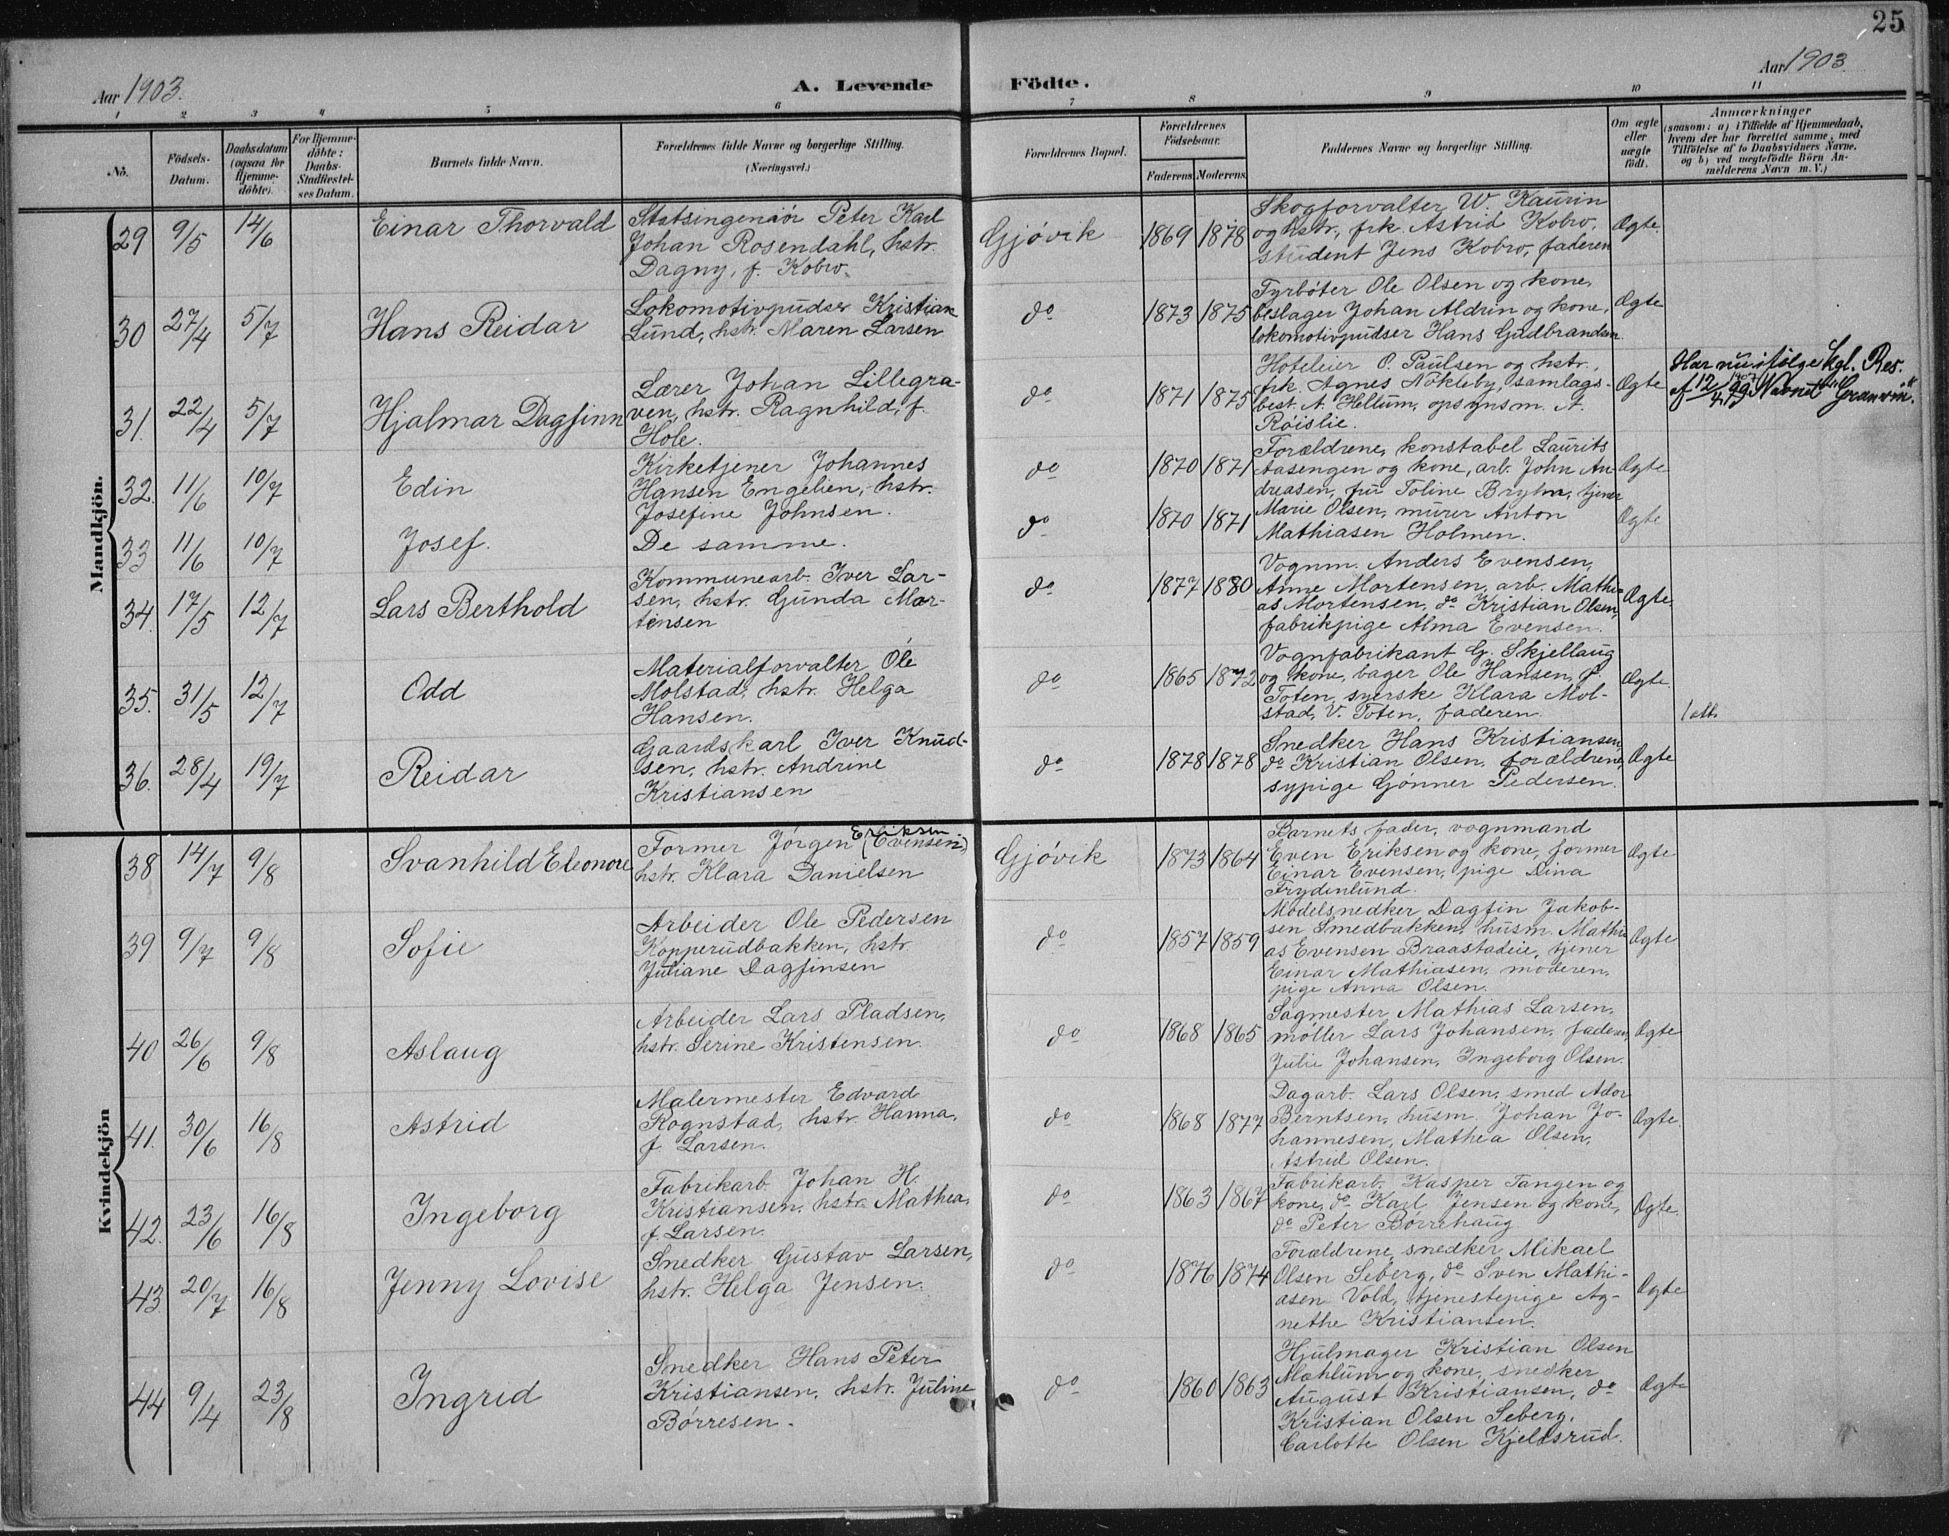 25
Aar 1903.
A. Levende Födte.
Aar 1903
1 2 3 4 5 6 7 8 9 10 11
No.
Födsels-Datum.
Daabsdatum (ogsaa for Hjemme-döbte).
For Hjemme-döbte: Daabs-Stadfæstel-ses Datum.
Barnets fulde Navn.
Forældrenes fulde Navne og borgerlige Stilling. (Næringsvei.)
Forældrenes Bopæl.
Forældrenes Födselsaar.
Faderens. Moderens.
Faddernes Navne og borgerlige Stilling.
Om ægte eller uægte födt.
Anmærkninger
(saasom: a) i Tilfælde af Hjemmedaab,
hvem der har forrettet samme, med
Tilföielse af to Daabsvidners Navne,
og b) ved uegtefödte Börn An-
melderens Navn m. V.)
Mandkjön.
29 9/5 14/6 Einar Thorvald
Statsingeniör Peter Karl
Johan Rosendahl, hstr.
Dagny, f. Kobro.
Gjövik 1869 1878
Skogforvalter W. Kaurin
og hstr., frk. Astrid Kobro,
student Jens Kobro, faderen
Ægte.
30 27/4 5/7 Hans Reidar
Lokomotivpudser Kristian
Lund, hstr. Maren Larsen
do 1873 1875
Fyrböter Ole Olsen og kone,
beslager Johan Aldrin og kone,
lokomotivpudser Hans Gudbrandsen
Ægte
31. 22/4 5/7 Hjalmar Dagfinn
Lærer Johan Lillegra-
ven, hstr. Ragnhild, f.
Hole.
do 1871 1875
Hoteleier O. Paulsen og hstr.,
frk. Agnes Nökleby, samlags-
best. A. Hellum, opsynsm. A.
Röislie.
Ægte
Har nu ifölge kgl. Res.
af 12/4 Navnet "Granvin".
32. 11/6 10/7 Edin
Kirketjener Johannes
Hansen Engelien, hstr.
Josefine Johnsen.
do 1870 1871
Forældrene, konstabel Laurits
Aasengen og kone, arb. John An-
dreasen, fru Toline Brytm, tjener
Ægte
33 11/6 10/7 Josef.
De samme.
do 1870 1871
Marie Olsen, murer Anton
Mathiasen Holmen.
Ægte
34. 17/5 12/7 Lars Berthold
Kommunearb. Iver Lar-
sen, hstr. Gunda Mor-
tensen
do 1877 1880
Vognm. Anders Evensen,
Anne Mortensen, arb. Mathi-
as Mortensen, do Kristian Olsen,
fabrikpige Alma Evensen.
Ægte.
35. 31/5 12/7 Odd
Materialforvalter Ole
Molstad, hstr. Helga
Hansen.
do 1865 1872
Vognfabrikant G. Skjellaug
og kone, bager Ole Hansen, Ö.
Toten, syerske Klara Mol-
stad, V. Toten, faderen.
Ægte.
1 att.
36. 28/4 19/7 Reidar
Gaardskarl Iver Knud-
sen, hstr. Andrine
Kristiansen
do 1878 1878
Snedker Hans Kristiansen,
do Kristian Olsen, forældrene,
sypige Gönner Pedersen.
Ægte
Kvindekjön
38 14/7 9/8 Svanhild Eleonore
Former Jörgen Eriksen (Evensen),
hstr. Klara Danielsen
Gjövik 1873 1864
Barnets fader, vognmand
Even Eriksen og kone, former
Einar Evensen, pige Dina
Frydenlund.
Ægte
39 9/7 9/8 Sofie
Arbeider Ole Pedersen
Kopperudbakken, hstr.
Juliane Dagfinsen
do 1857 1859
Modelsnedker Dagfin Jakob-
sen Smedbakken, husm. Mathi-
as Evensen Braastadeie, tjener
Einar Mathiasen, moderen,
pige Anna Olsen.
Ægte
40 26/6 9/8 Aslaug
Arbeider Lars Pladsen,
hstr. Serine Kristensen.
do 1868 1865
Sagmester Mathias Larsen,
möller Lars Johansen, faderen,
Julie Johansen, Ingeborg Olsen.
Ægte
41. 30/6 16/8 Astrid
Malermester Edvard
Rognstad, hstr. Hanna,
f. Larsen.
do 1868 1877
Dagarb. Lars Olsen, smed Ador
Berntsen, husm. Johan Jo-
hannesen, Mathea Olsen,
Astrid Olsen.
Ægte.
42. 23/6 16/8 Ingeborg
Fabrikarb. Johan H.
Kristiansen, hstr. Mathea,
f. Larsen.
do 1863 1867
Fabrikarb. Kasper Tangen og
kone, do Karl Jensen og kone,
do Peter Börrehaug
Ægte.
43. 20/7 16/8 Jenny Lovise
Snedker Gustav Larsen,
hstr. Helga Jensen.
do 1876 1874
Forældrene, snedker Mikael
Olsen Seberg, do Sven Mathi-
asen Vold, tjenestepige Ag-
nethe Kristiansen.
Ægte
44 9/4 23/8 Ingrid
Snedker Hans Peter
Kristiansen, hstr. Juline
Börresen.
do 1860 1863
Hjulmager Kristian Olsen
Mæhlum og kone, snedker
August Kristiansen, do
Kristian Olsen Seberg,
Carlotte Olsen Kjeldsrud.
Ægte